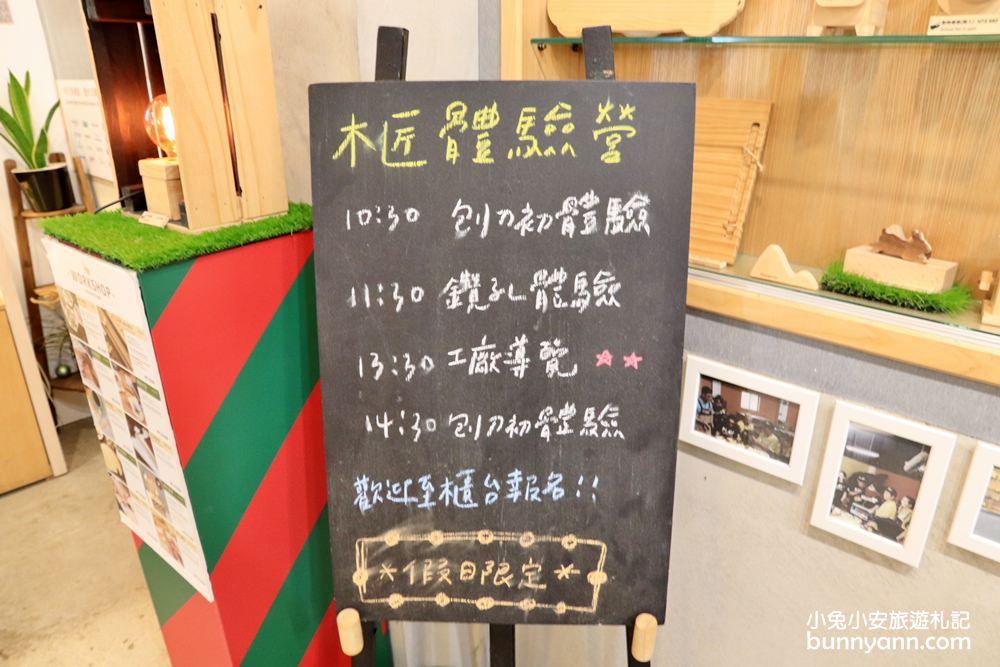 木匠體驗營
10:30 刨刀初體驗
11:30 鑽孔體驗
13:30 工廠導覽 ☆☆
14:30 刨刀初體驗
歡迎至櫃台報名!!
*假日限定*
WORKSHOP
小兔小安旅遊札記
bunnyann.com